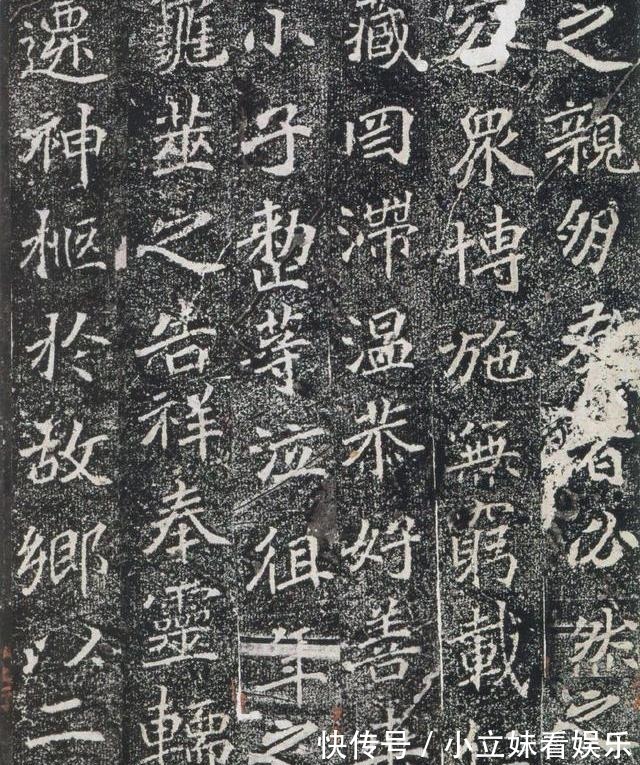 之親友百必然之
容眾博施無窮載
藏罔滯温恭好善
小子整等泣徂年之
龜筮之告祥奉靈轜
遷神柩於故鄉以二
快传号/小立妹看娱乐